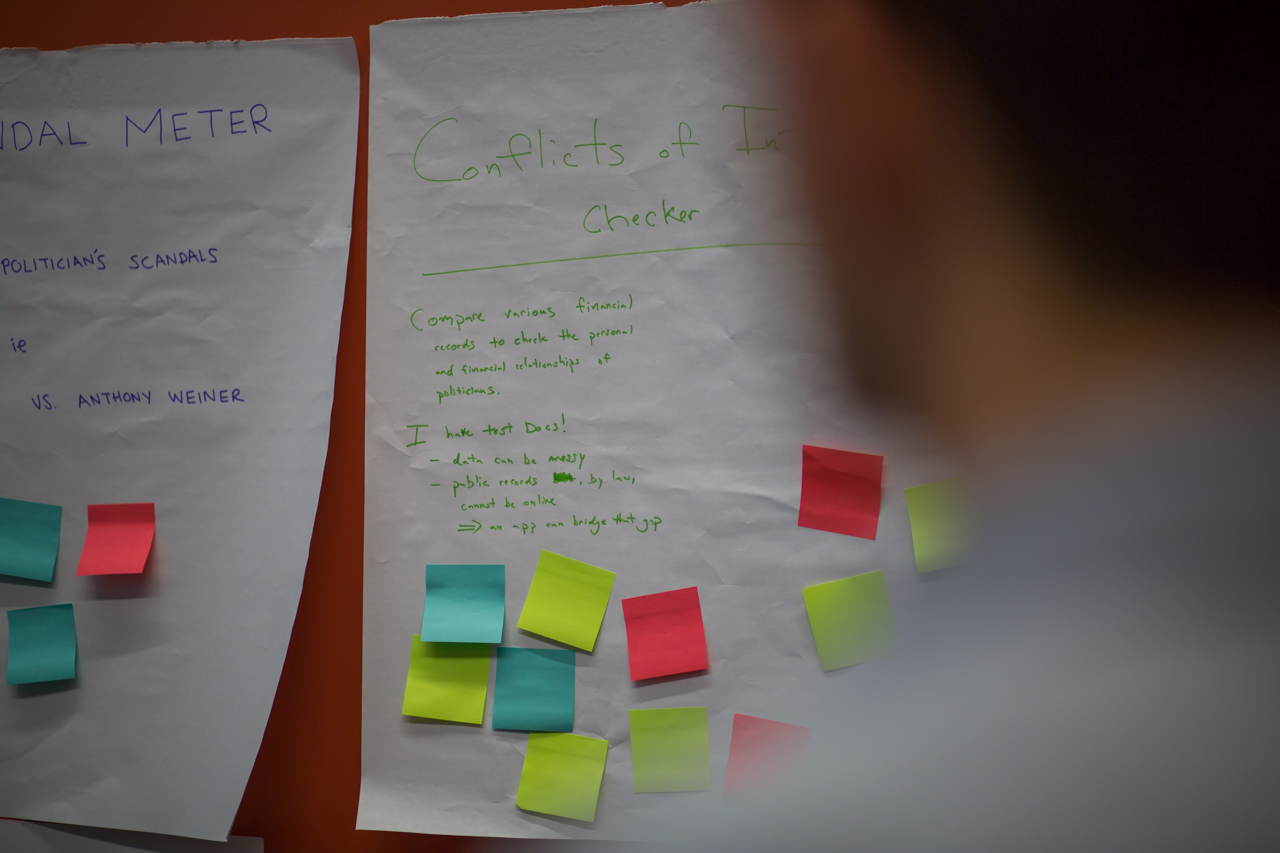 NDAL METER
POLITICIAN'S SCANDALS
ie
VS. ANTHONY WEINER
Conflicts of In
Checker
Compare various financial
records to check the personal
and financial relationships of
politicians.
I have test Docs!
- data can be messy
- public records , by law,
cannot be online
⇒ an app can bridge that gap